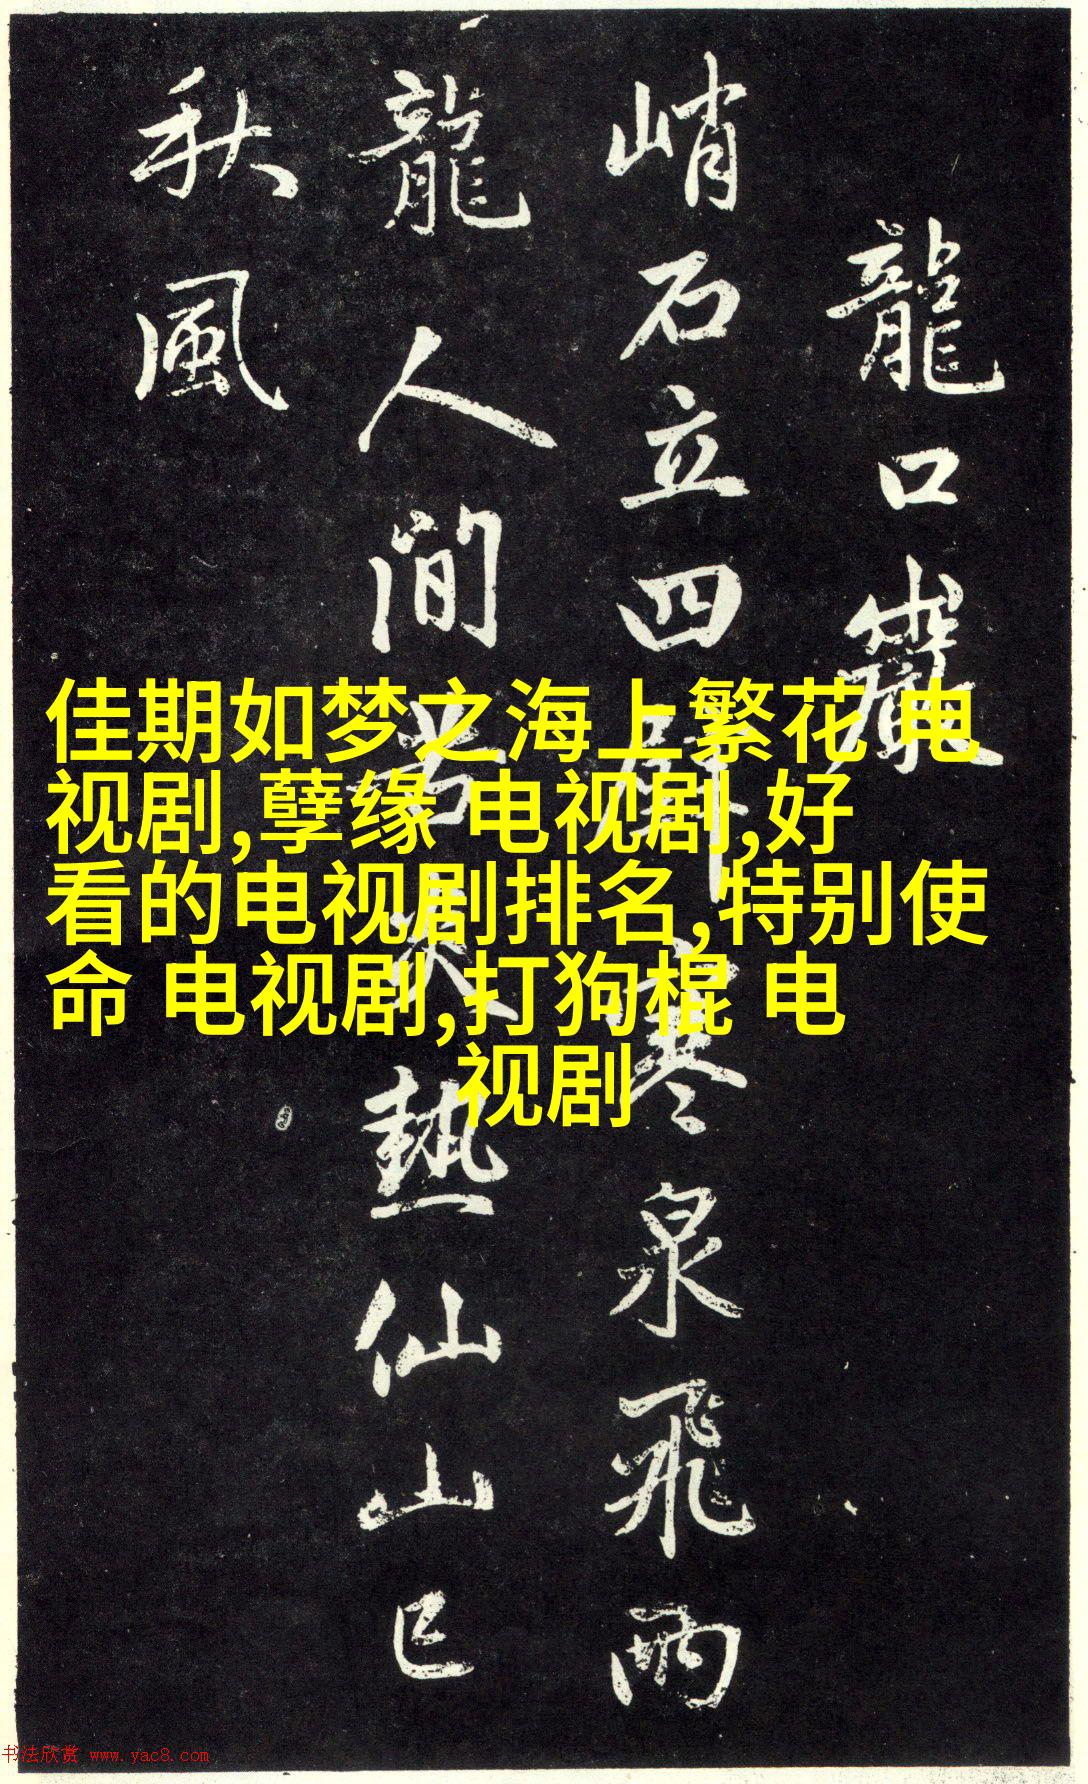 龍口
峭石立四壁寒泉飛兩
龍人間苦炎熱仙山已
秋風
佳期如梦之海上繁花 电
视剧,孽缘 电视剧,好
看的电视剧排名,特别使
命 电视剧,打狗棍 电
视剧
书法欣赏 www.yac8.com